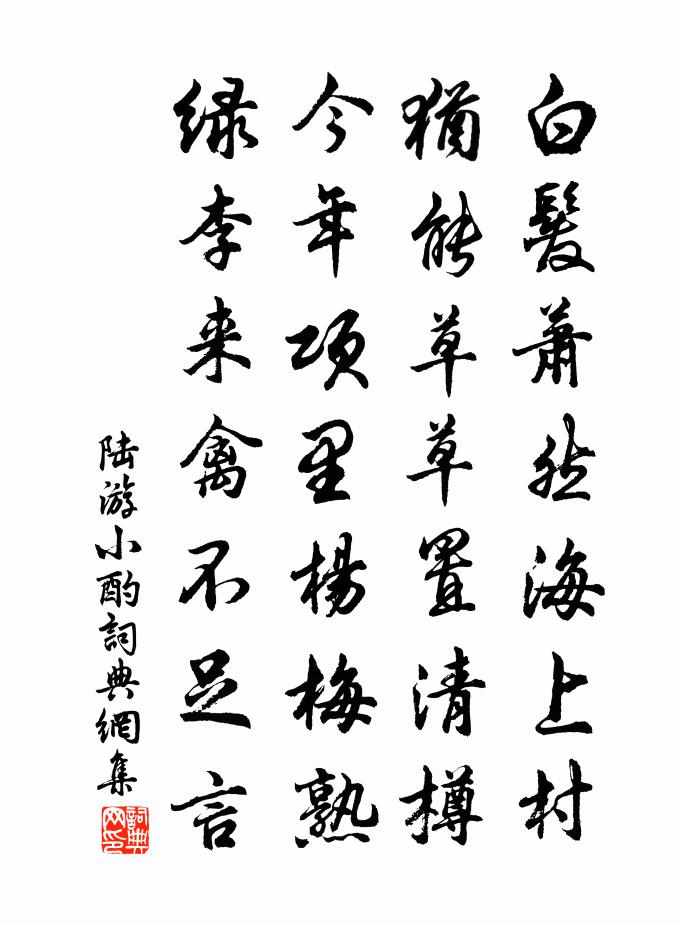 白髮蕭然海上村
猶能草草置清樽
今年項里楊梅熟
緑李来禽不足言
陆游小酌詞典網集
詞典网印